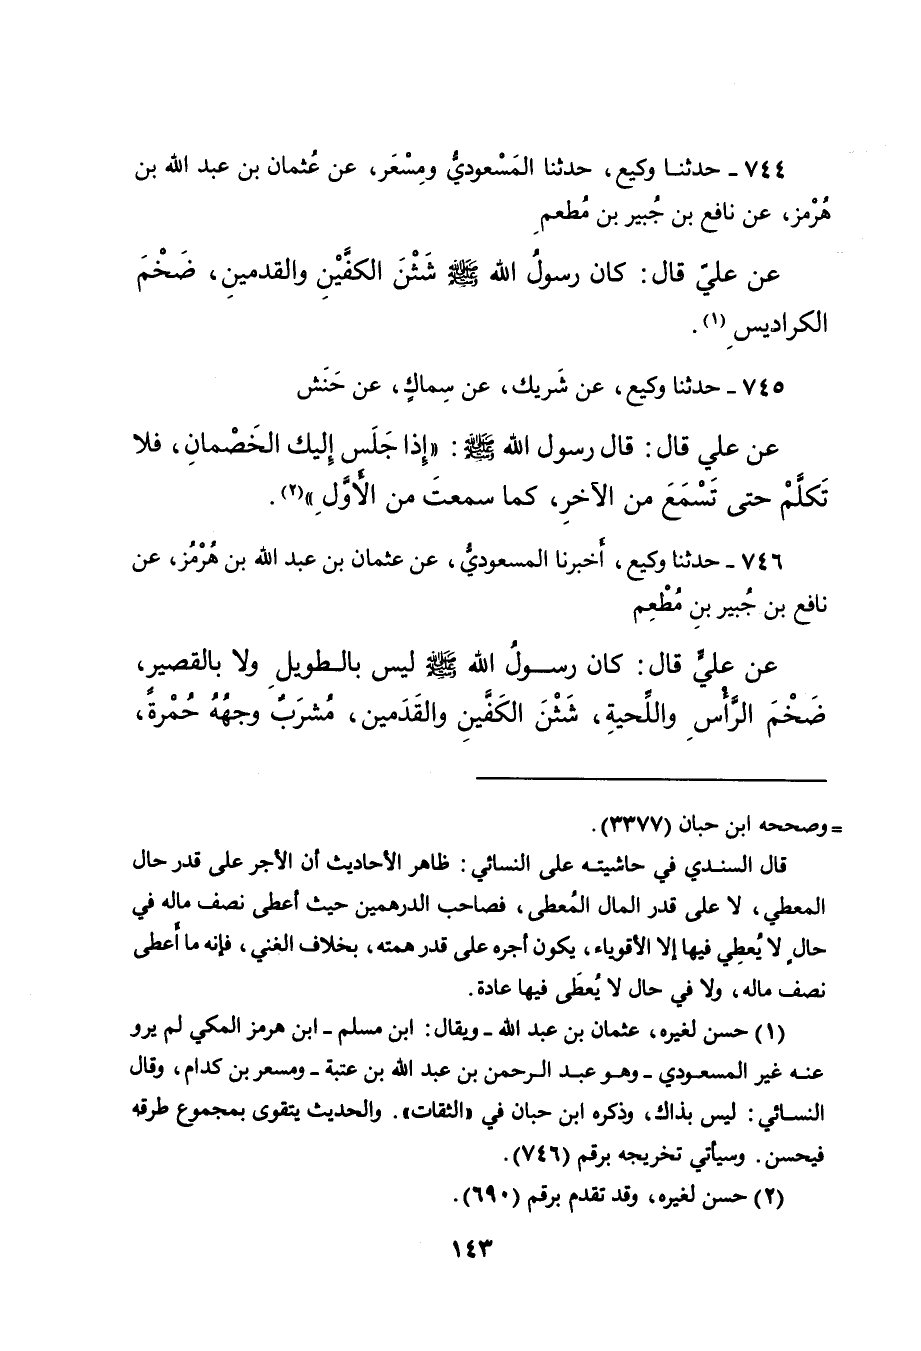 ٧٤٤ ـ حدثنـا وكيع، حدثنا المَسْعوديُّ ومِسْعَر، عن عُثمان بن عبد الله بن
هُرْمز، عن نافع بن جُبير بن مُطعمِ
عن عليّ قال: كان رسولُ الله ﷺ شَثْنَ الكفَّيْنِ والقدمينِ، ضَخْمَ
الكراديسِ (١).
٧٤٥ ـ حدثنا وكيع، عن شَريك، عن سِماكٍ، عن حَنَش
عن علي قال: قال رسول الله ﷺ: «إذا جَلَس إليك الخَصْمانِ، فلا
تَكلَّمْ حتى تَسْمَعَ من الآخرِ، كما سمعتَ من الأَوَّلِ»(٢).
٧٤٦ ـ حدثنا وكيع، أَخبرنا المسعوديُّ، عن عثمان بن عبد الله بن هُرْمُز، عن
نافع بن جُبير بنِ مُطْعِم
عن عليٍّ قال: كان رســولُ الله ﷺ ليس بالـطويلِ ولا بالقصير،
ضَخْمَ الرَّأْسِ واللِّحيةِ، شَثْنَ الكَفَّينِ والقَدَمين، مُشرَبٌ وجهُهُ حُمْرةً،
= وصححه ابن حبان (٣٣٧٧).
قال السنـدي في حاشيتـه على النسائي: ظاهر الأحاديث أن الأجر على قدر حال
المعطي، لا على قدر المال المُعطى، فصاحب الدرهمين حيث أعطى نصف ماله في
حالٍ لا يُعطِي فيها إلا الأقوياء، يكون أجره على قدر همته، بخلاف الغني، فإنه ما أَعطى
نصف ماله، ولا في حال لا يُعطَى فيها عادة.
(١) حسن لغيره، عثمان بن عبد الله ـ ويقال: ابن مسلم ـ ابن هرمز المكي لم يرو
عنـه غير المسعـودي ـ وهـو عبـد الـرحمن بن عبد الله بن عتبة ـ ومسعر بن كدام، وقال
النسـائي: ليس بذاك، وذكره ابن حبان في «الثقات». والحديث يتقوى بمجموع طرقه
فيحسن. وسيأتي تخريجه برقم (٧٤٦).
(٢) حسن لغيره، وقد تقدم برقم (٦٩٠).
١٤٣